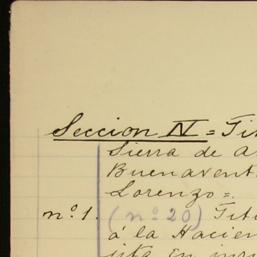 Seccion IV = Tit
Sierra de A
Buenavent
Lorenzo =.
nº 1. (nº 20) Tit
á la Hacien